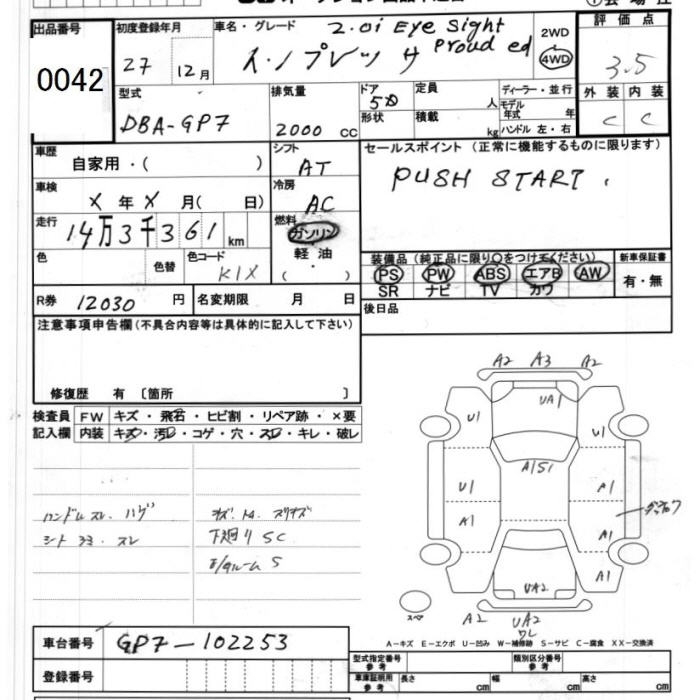 出品番号 初度登録年月 車名・グレード 2.0i Eye Sight 2WD 評価点
0042 27 12月 インプレッサ Proud ed 4WD 3.5
型式 排気量 ドア 5D 定員 人 ディーラー・並行 外装 内装
DBA-GP7 2000 CC 形状 積載 kg モデル年式 年 C C
ハンドル 左・右
車歴 自家用・( ) シフト AT セールスポイント(正常に機能するものに限ります)
車検 X 年 X 月( 日) 冷房 AC PUSH START.
走行 14万3千361 km 燃料 ガソリン
軽油
色 色替 色コード K1X ( ・ ) 装備品(純正品に限り○をつけてください) 新車保証書
PS PW ABS エアB AW 有・無
SR ナビ TV カワ
R券 12030 円 名変期限 月 日 後日品
注意事項申告欄(不具合内容等は具体的に記入して下さい)
修復歴 有 〔箇所 〕
検査員 FW キズ・飛石・ヒビ割・リペア跡・×要
記入欄 内装 キズ・汚レ・コゲ・穴・スレ・キレ・破レ
A2 A3 A2
U1 UA1 U1
A1S1
U1 A1
A1 A1
A1
UA2
A2 UA2
ワレ
スペア
ハンドルスレ、ハゲ
シート スレ
下廻りSC
A-キズ E-エクボ U-凹み W-補修跡 S-サビ C-腐食 XX-交換済
車台番号 GP7-102253
登録番号
型式指定番号 参考 類別区分番号 参考
車庫証明用 参考 長さ cm 幅 cm 高さ cm